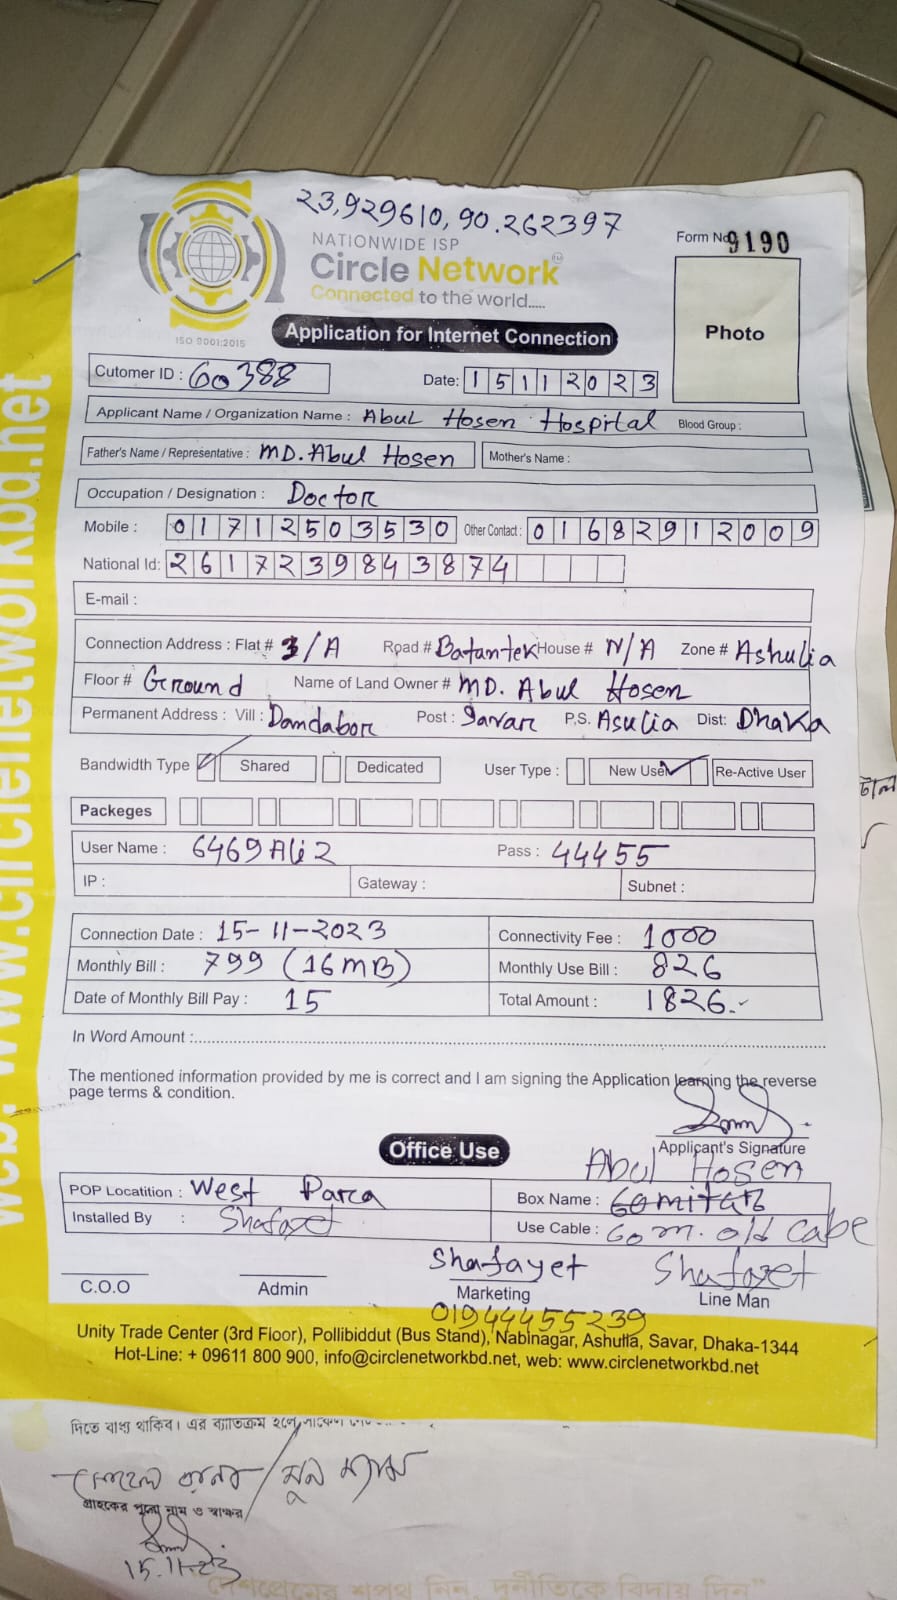 23,929610, 90.262397
NATIONWIDE ISP
Circle Network
Connected to the world.....
ISO 9001:2015
Form No 9190
Photo
Application for Internet Connection
Cutomer ID : 60388
Date: 15112023
Applicant Name / Organization Name : Abul Hosen Hospital Blood Group :
Father's Name / Representative : MD. Abul Hosen Mother's Name :
Occupation / Designation : Doctor
Mobile : 01712503530 Other Contact : 01682912009
National Id: 2617239843874
E-mail :
Connection Address : Flat # 3/A Road # Batantek House # N/A Zone # Ashulia
Floor # Ground Name of Land Owner # MD. Abul Hosen
Permanent Address : Vill : Dandabor Post : Savar P.S. Asulia Dist: Dhaka
Bandwidth Type Shared Dedicated User Type : New User Re-Active User
Packeges
User Name : 6469Ali2 Pass : 44455
IP : Gateway : Subnet :
Connection Date : 15-11-2023 Connectivity Fee : 1000
Monthly Bill : 799 (16MB) Monthly Use Bill : 826
Date of Monthly Bill Pay : 15 Total Amount : 1826.-
In Word Amount :
The mentioned information provided by me is correct and I am signing the Application learning the reverse
page terms & condition.
Applicant's Signature
Abul Hosen
Office Use
POP Locatition : West Parca Box Name : Gomitar
Installed By : Shafayet Use Cable : 60 m. old cabe
Shafayet Shafayet
C.O.O Admin Marketing Line Man
01944455239
Unity Trade Center (3rd Floor), Pollibiddut (Bus Stand), Nabinagar, Ashulia, Savar, Dhaka-1344
Hot-Line: + 09611 800 900, info@circlenetworkbd.net, web: www.circlenetworkbd.net
web: www.circlenetworkbd.net
দিতে বাধ্য থাকিব। এর ব্যাতিক্রম হলে
গ্রাহকের পুরো নাম ও স্বাক্ষর
15.11.23
দেশপ্রেমের শপথ নিন, দুর্নীতিকে বিদায় দিন"